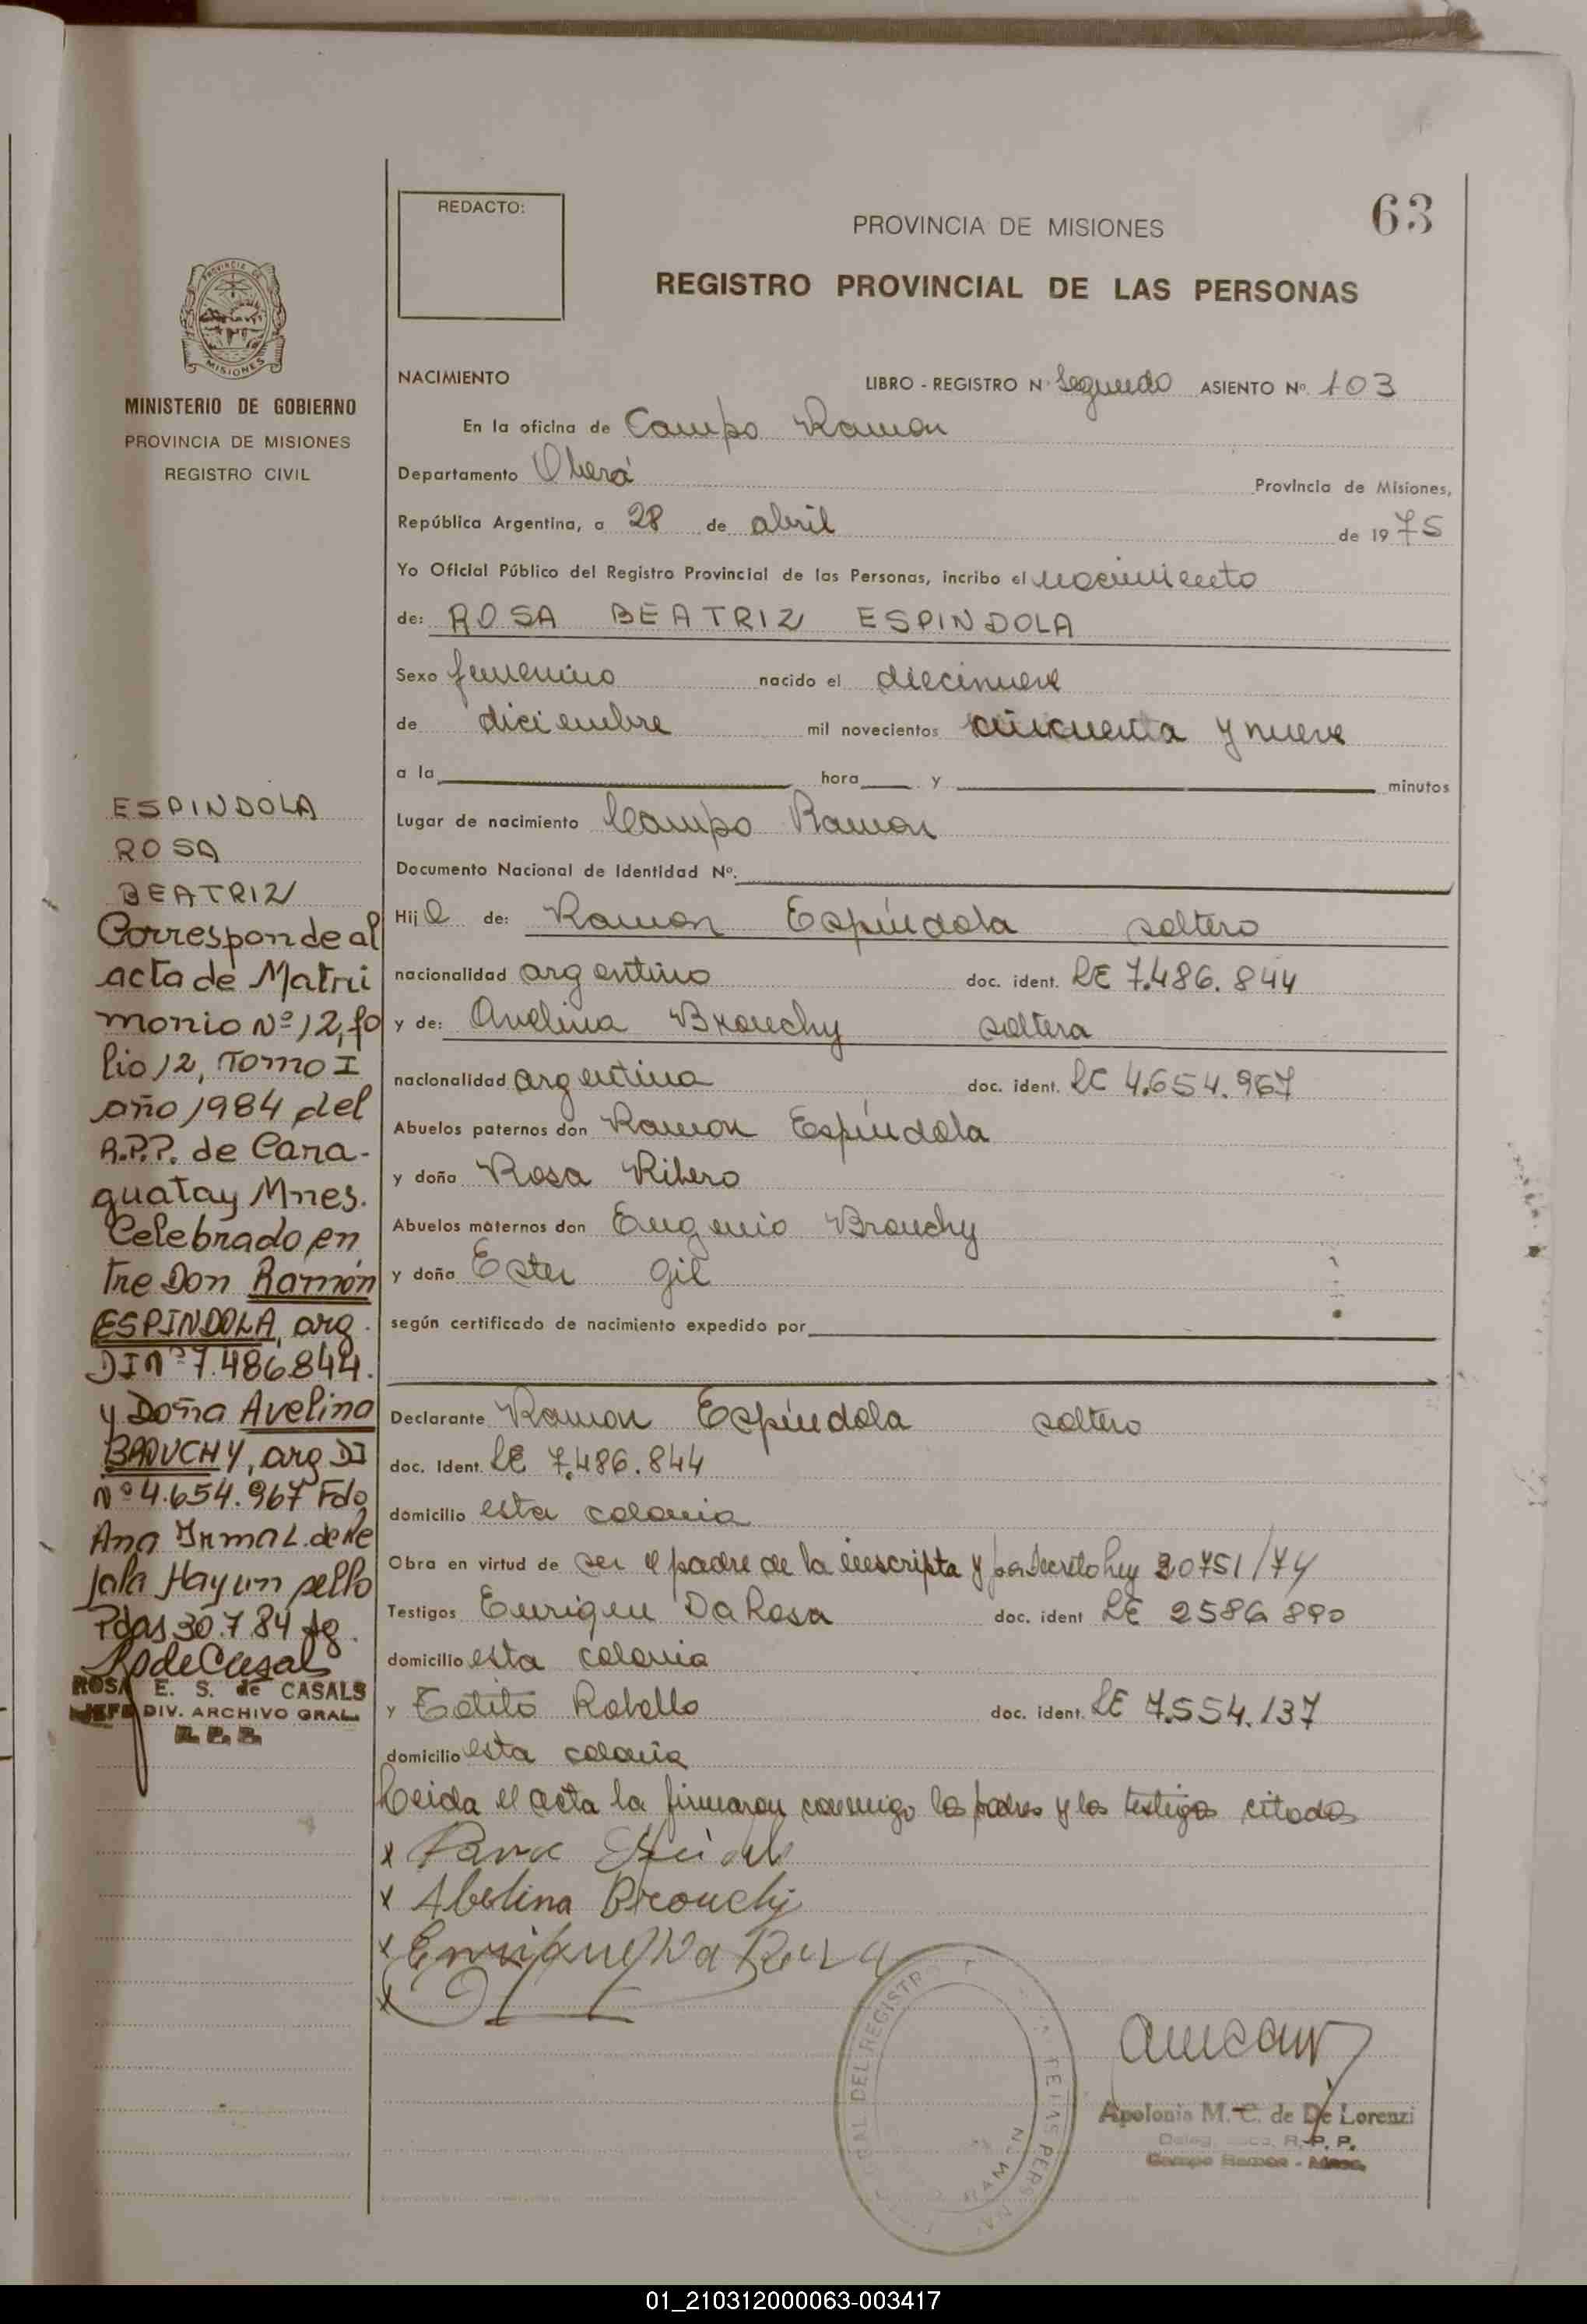 REDACTO:
PROVINCIA DE MISIONES
63
REGISTRO PROVINCIAL DE LAS PERSONAS
PROVINCIA DE
MISIONES
MINISTERIO DE GOBIERNO
PROVINCIA DE MISIONES
REGISTRO CIVIL
NACIMIENTO
LIBRO - REGISTRO N° Segundo ASIENTO Nº. 103
En la oficina de Campo Ramon
Departamento Oberá Provincia de Misiones,
República Argentina, a 28 de abril de 1975
Yo Oficial Público del Registro Provincial de las Personas, incribo el nacimiento
de: ROSA BEATRIZ ESPINDOLA
Sexo femenino nacido el diecinueve
de diciembre mil novecientos cincuenta y nueve
a la hora y minutos
Lugar de nacimiento Campo Ramon
Documento Nacional de Identidad Nº.
Hija de: Ramon Espíndola soltero
nacionalidad argentino doc. ident. LE 7.486.844
y de: Avelina Brouchy soltera
nacionalidad argentina doc. ident. LC 4.654.967
Abuelos paternos don Ramon Espíndola
y doña Rosa Ribero
Abuelos maternos don Eugenio Brouchy
y doña Ester Gil
según certificado de nacimiento expedido por
Declarante Ramon Espíndola soltero
doc. Ident. LE 7.486.844
domicilio esta colonia
Obra en virtud de ser el padre de la inscripta y por Decreto Ley 20751/74
Testigos Enrique Da Rosa doc. ident LE 2586890
domicilio esta colonia
y Robello doc. ident. LE 7.554.137
domicilio esta colonia
Leida el acta la firmaron conmigo los padres y los testigos citados
x
x Abelina Brouchi
x Enrique Da Rosa
x
ESPINDOLA
ROSA
BEATRIZ
Corresponde al
acta de Matri
monio Nº 12, fo
lio 12, Tomo I
año 1984 del
R.P.P. de Cara-
guatay Mnes.
Celebrado en
tre Don Ramón
ESPINDOLA, arg.
DI nº 7.486.844.
y Doña Avelina
BROUCHY, arg DI
Nº 4.654.967 Fdo
Ana Irma L. de Re
jala Hay un sello
Pdas 30.7.84
ROSA E. S. de CASALS
JEFE DIV. ARCHIVO GRAL.
R. P. P.
DEL REGISTRO
RAMON
Apolonia M. C. de De Lorenzi
R. P. P.
Campo Ramon - Mnes.
01_210312000063-003417